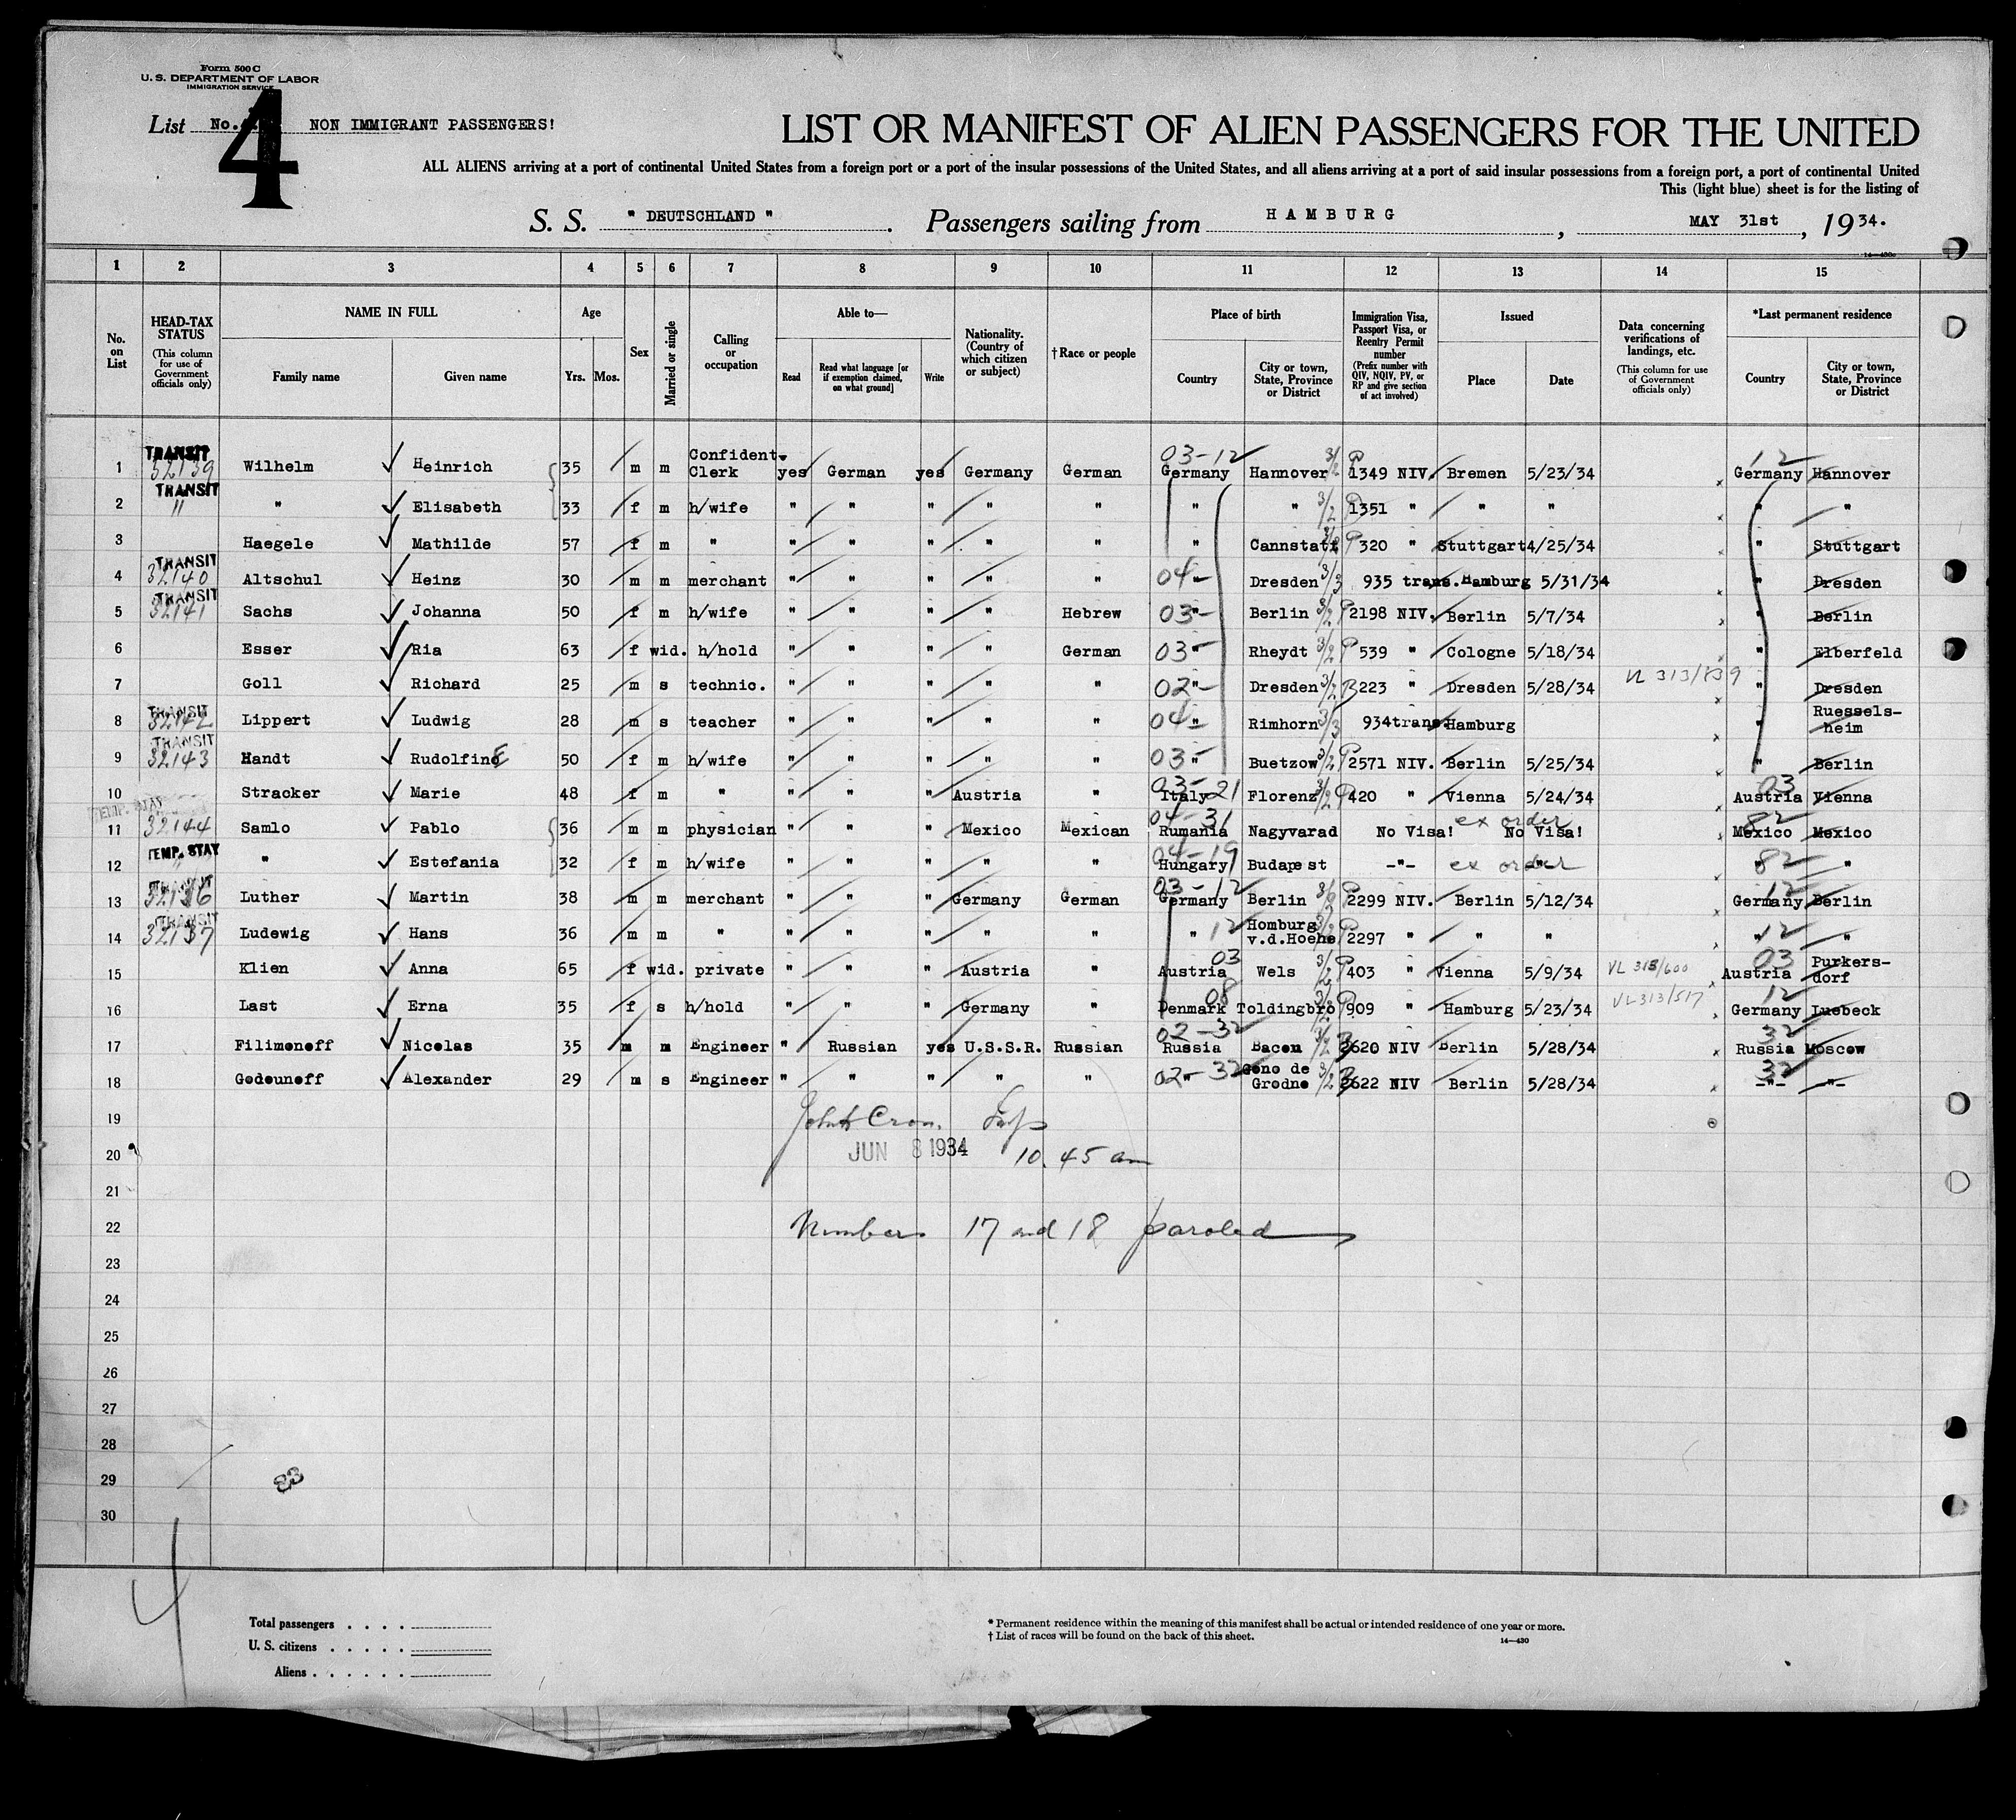 Form 500 C
U. S. DEPARTMENT OF LABOR
IMMIGRATION SERVICE
List No. 4 NON IMMIGRANT PASSENGERS!
LIST OR MANIFEST OF ALIEN PASSENGERS FOR THE UNITED
ALL ALIENS arriving at a port of continental United States from a foreign port or a port of the insular possessions of the United States, and all aliens arriving at a port of said insular possessions from a foreign port, a port of continental United
This (light blue) sheet is for the listing of
S. S. " DEUTSCHLAND " . Passengers sailing from HAMBURG , MAY 31st , 1934.
14—430c
1 2 3 4 5 6 7 8 9 10 11 12 13 14 15
No. on List
HEAD-TAX STATUS (This column for use of Government officials only)
NAME IN FULL
Family name Given name
Age
Yrs. Mos.
Sex
Married or single
Calling or occupation
Able to—
Read Read what language [or if exemption claimed, on what ground] Write
Nationality. (Country of which citizen or subject)
†Race or people
Place of birth
Country City or town, State, Province or District
Immigration Visa, Passport Visa, or Reentry Permit number (Prefix number with QIV, NQIV, PV, or RP and give section of act involved)
Issued
Place Date
Data concerning verifications of landings, etc. (This column for use of Government officials only)
*Last permanent residence
Country City or town, State, Province or District
1 TRANSIT 32139 Wilhelm Heinrich 35 m m Confident. Clerk yes German yes Germany German 03-12 Germany Hannover 3/2 P 1349 NIV. Bremen 5/23/34 12 Germany Hannover
2 TRANSIT " " Elisabeth 33 f m h/wife " " " " " " " 3/2 P 1351 " " " " "
3 Haegele Mathilde 57 f m " " " " " " " Cannstatt 3/2 P 320 " Stuttgart 4/25/34 " Stuttgart
4 TRANSIT 32140 Altschul Heinz 30 m m merchant " " " " " 04- " Dresden 3/3 935 trans. Hamburg 5/31/34 " Dresden
5 TRANSIT 32141 Sachs Johanna 50 f m h/wife " " " " Hebrew 03- " Berlin 3/2 P 2198 NIV. Berlin 5/7/34 " Berlin
6 Esser Ria 63 f wid. h/hold " " " " German 03- " Rheydt 3/2 P 539 " Cologne 5/18/34 " Elberfeld
7 Goll Richard 25 m s technic. " " " " " 02- " Dresden 3/2 B 223 " Dresden 5/28/34 VL 313/839 " Dresden
8 TRANSIT 32142 Lippert Ludwig 28 m s teacher " " " " " 04- " Rimhorn 3/3 934 trans. Hamburg " Ruesselsheim
9 TRANSIT 32143 Handt Rudolfine 50 f m h/wife " " " " " 03- " Buetzow 3/2 P 2571 NIV. Berlin 5/25/34 " Berlin
10 Stracker Marie 48 f m " " " " Austria " 03-21 Italy Florenz 3/2 P 420 " Vienna 5/24/34 03 Austria Vienna
11 TEMP. STAY 32144 Samlo Pablo 36 m m physician " " " Mexico Mexican 04-31 Rumania Nagyvarad No Visa! ex order No Visa! 82 Mexico Mexico
12 TEMP. STAY " " Estefania 32 f m h/wife " " " " " 04-19 Hungary Budapest -"- ex order " 82 " "
13 32136 Luther Martin 38 m m merchant " " " Germany German 03-12 Germany Berlin 3/2 P 2299 NIV. Berlin 5/12/34 12 Germany Berlin
14 TRANSIT 32137 Ludewig Hans 36 m m " " " " " " " 12 Homburg v.d.Hoehe 3/2 P 2297 " " " 12 " "
15 Klien Anna 65 f wid. private " " " Austria " 03 Austria Wels 3/2 P 403 " Vienna 5/9/34 VL 313/600 03 Austria Purkersdorf
16 Last Erna 35 f s h/hold " " " Germany " 08 Denmark Toldingbro 3/2 P 909 " Hamburg 5/23/34 VL 313/517 12 Germany Luebeck
17 Filimonoff Nicolas 35 m m Engineer " Russian yes U.S.S.R. Russian 02-32 Russia Bacou 3/2 3620 NIV Berlin 5/28/34 32 Russia Moscow
18 Godounoff Alexander 29 m s Engineer " " " " " 02- " 32 Gono de Grodno 3/2 3622 NIV Berlin 5/28/34 32 -"- -"-
19
JUN 8 1934
20 10.45 am
21
22 Numbers 17 and 18 paroled
23
24
25
26
27
28
29 83
30
4
Total passengers
U. S. citizens
Aliens
* Permanent residence within the meaning of this manifest shall be actual or intended residence of one year or more.
† List of races will be found on the back of this sheet.
14—430